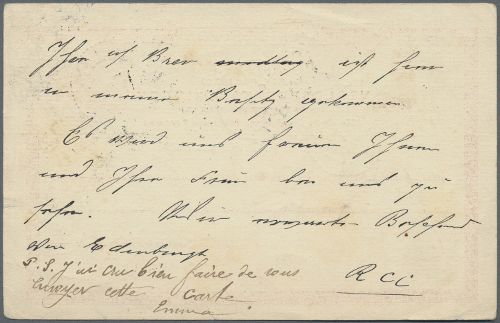 Ihr w/ Brev ist hier
in meinen Besitz gekommen.
Es wird uns freuen Ihnen
und Ihre Frau bei uns zu
sehen. Wir erwarte
von Edenburgh
P.S. J'ai cru bien faire de vous
Envoyer cette carte
Emma